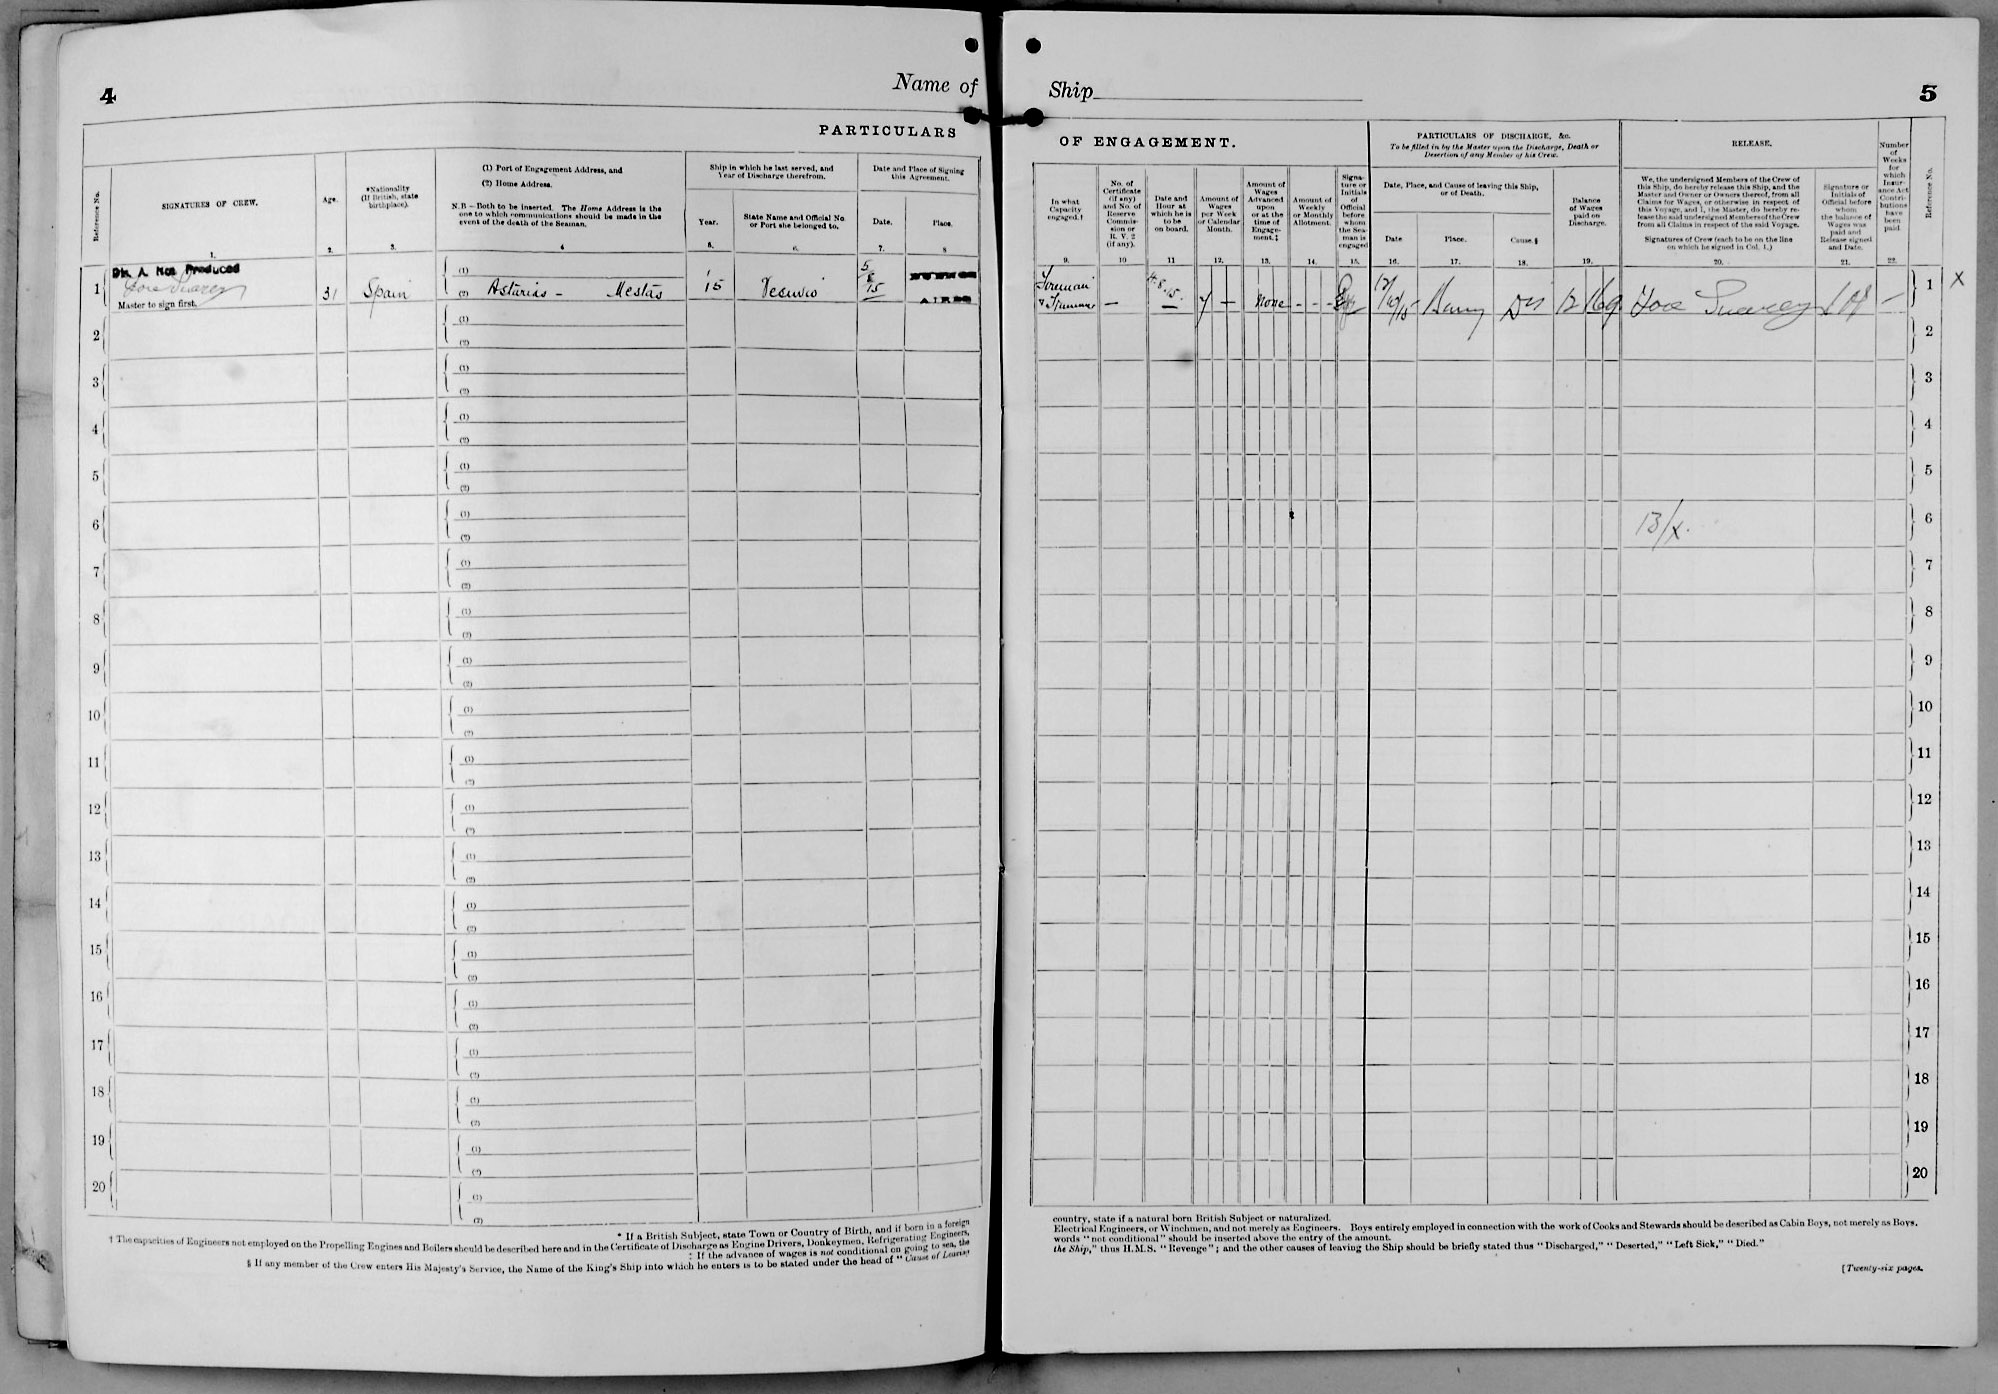 4
Name of
PARTICULARS
Reference No.
SIGNATURES OF CREW.
Age.
*Nationality
(If British, state
birthplace).
(1) Port of Engagement Address, and
(2) Home Address.
N.B—Both to be inserted. The Home Address is the
one to which communications should be made in the
event of the death of the Seaman.
Ship in which he last served, and
Year of Discharge therefrom.
Year.
State Name and Official No.
or Port she belonged to.
Date and Place of Signing
this Agreement.
Date.
Place.
1. 2. 3. 4 5. 6. 7. 8
Dis. A. Not Produced
1 Jose Suarez 31 Spain (1)
(2) Asturias - Mestas '15 Vesuvio 5/8/15 AIRES
Master to sign first.
2 (1)
(2)
3 (1)
(2)
4 (1)
(2)
5 (1)
(2)
6 (1)
(2)
7 (1)
(2)
8 (1)
(2)
9 (1)
(2)
10 (1)
(2)
11 (1)
(2)
12 (1)
(2)
13 (1)
(2)
14 (1)
(2)
15 (1)
(2)
16 (1)
(2)
17 (1)
(2)
18 (1)
(2)
19 (1)
(2)
20 (1)
(2)
* If a British Subject, state Town or Country of Birth, and if born in a foreign
† The capacities of Engineers not employed on the Propelling Engines and Boilers should be described here and in the Certificate of Discharge as Engine Drivers, Donkeymen, Refrigerating Engineers,
‡ If the advance of wages is not conditional on going to sea, the
§ If any member of the Crew enters His Majesty's Service, the Name of the King's Ship into which he enters is to be stated under the head of "Cause of Leaving
Ship
5
OF ENGAGEMENT.
PARTICULARS OF DISCHARGE, &c.
To be filled in by the Master upon the Discharge, Death or
Desertion of any Member of his Crew.
RELEASE.
In what
Capacity
engaged.†
No. of
Certificate
(if any)
and No. of
Reserve
Commis-
sion or
R. V. 2
(if any).
Date and
Hour at
which he is
to be
on board.
Amount of
Wages
per Week
or Calendar
Month.
Amount of
Wages
Advanced
upon
or at the
time of
Engage-
ment.‡
Amount of
Weekly
or Monthly
Allotment.
Signa-
ture or
Initials
of
Official
before
whom
the Sea-
man is
engaged
Date, Place, and Cause of leaving this Ship,
or of Death.
Date
Place.
Cause.§
Balance
of Wages
paid on
Discharge.
We, the undersigned Members of the Crew of
this Ship, do hereby release this Ship, and the
Master and Owner or Owners thereof, from all
Claims for Wages, or otherwise in respect of
this Voyage, and I, the Master, do hereby re-
lease the said undersigned Members of the Crew
from all Claims in respect of the said Voyage.
Signatures of Crew (each to be on the line
on which he signed in Col. 1.)
Signature or
Initials of
Official before
whom
the balance of
Wages was
paid and
Release signed
and Date.
Number
of
Weeks
for
which
Insur-
ance Act
Contri-
butions
have
been
paid.
Reference No.
9. 10 11 12. 13. 14. 15. 16. 17. 18. 19. 20. 21. 22.
Fireman
& Trimmer — 4.8.15. 7 — None - - - 12/10/15 Barry Dis 12 16 9 Jose Suarez — 1 X
2
3
4
5
13/X. 6
7
8
9
10
11
12
13
14
15
16
17
18
19
20
country, state if a natural born British Subject or naturalized.
Electrical Engineers, or Winchmen, and not merely as Engineers. Boys entirely employed in connection with the work of Cooks and Stewards should be described as Cabin Boys, not merely as Boys.
words "not conditional" should be inserted above the entry of the amount.
the Ship," thus H.M.S. "Revenge"; and the other causes of leaving the Ship should be briefly stated thus "Discharged," "Deserted," "Left Sick," "Died."
[Twenty-six pages.